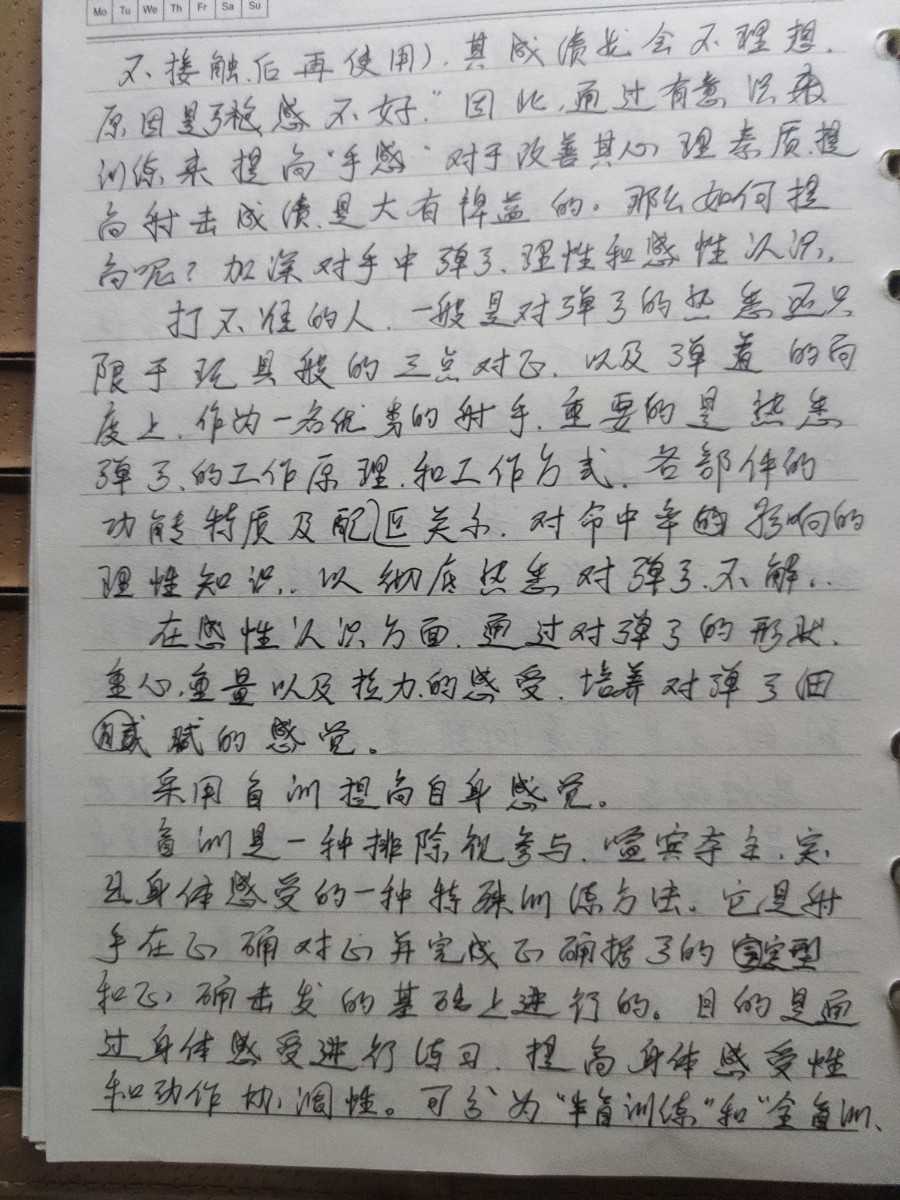 Mo Tu We Th Fr Sa Su
不接触后再使用），其成绩就会不理想.
原因是弓枪感不好"因此，通过有意识来
训练来提高"手感"对于改善其心理素质，提
高射击成绩是大有裨益的。那么如何提
高呢？加深对手中弹弓、理性和感性认识，
打不准的人，一般是对弹弓的熟悉还只
限于玩具般的三点对正，以及弹着的高
度上，作为一名优秀的射手，重要的是熟悉
弹弓、的工作原理，和工作方式，各部件的
功能特质及配区关系，对命中率的影响的
理性知识，以彻底熟悉对弹弓、不解，
在感性认识方面，通过对弹弓的形状、
重心、重量以及拉力的感受，培养对弹弓细
腻的感觉。
采用盲训提高自身感觉。
盲训是一种排除视参与，喧宾夺主，突
出身体感受的一种特殊训练方法。它是射
手在正确对正并完成正确据弓的定型
和正确击发的基础上进行的。目的是通
过身体感受进行练习，提高身体感受性
和动作协调性。可分为"半盲训练"和"全盲训、